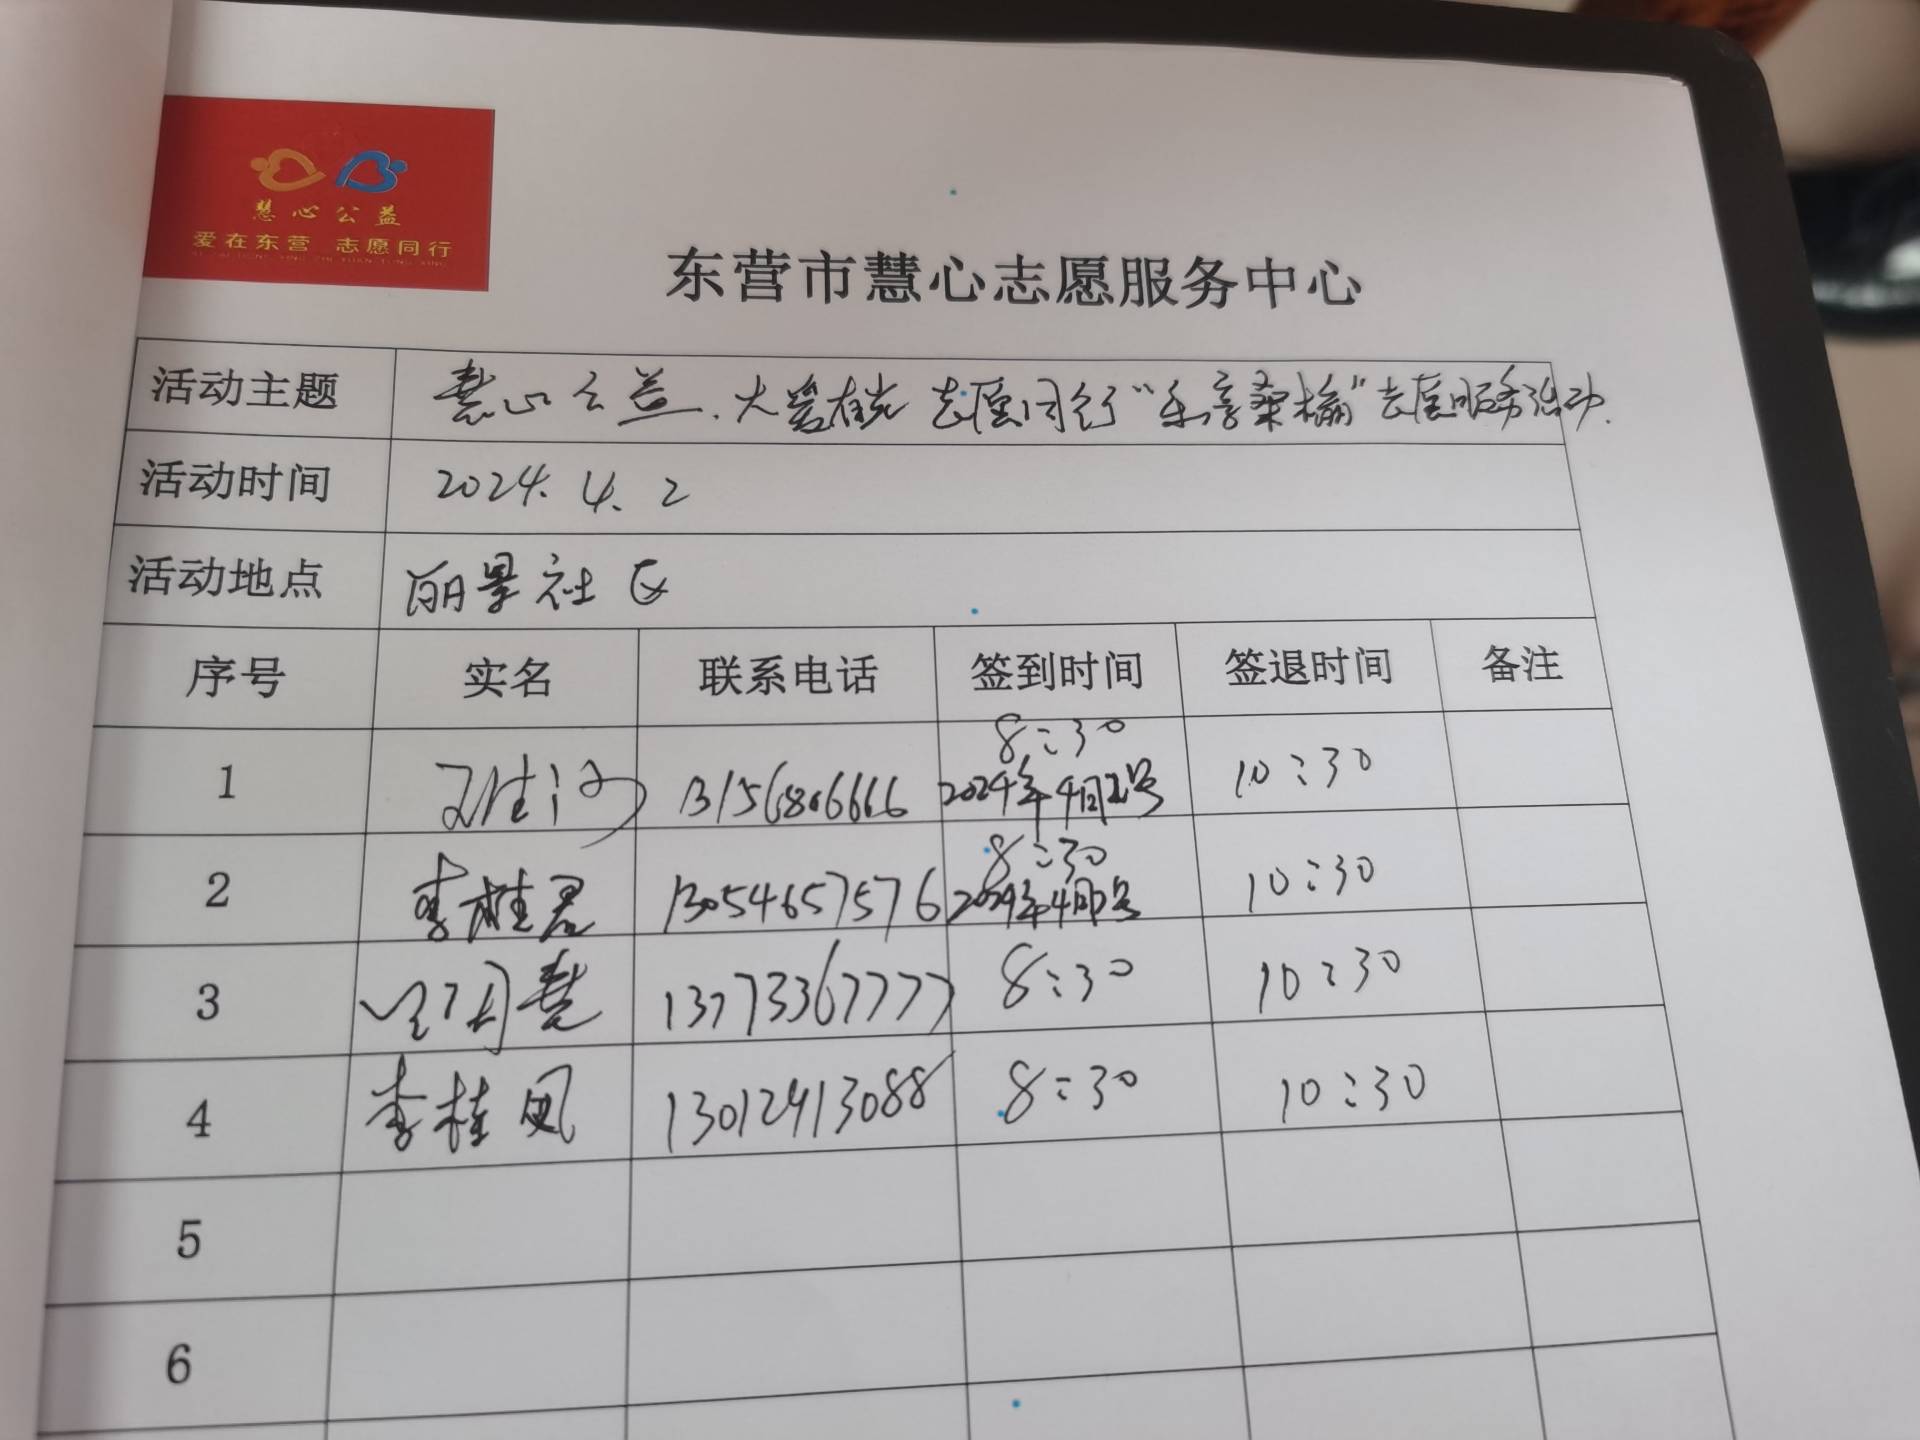 慧心公益
爱在东营 志愿同行
AI ZAI DONG YING ZHI YUAN TONG XING
东营市慧心志愿服务中心
活动主题 慧心公益.大爱有光 志愿同行"乐享桑榆"志愿服务活动.
活动时间 2024.4.2
活动地点 丽景社区
序号 实名 联系电话 签到时间 签退时间 备注
8:30
1 13156806666 2024年4月2号 10:30
8:30
2 李桂君 13054657576 2024年4月2号 10:30
3 慧 13773367777 8:30 10:30
4 李桂凤 13012413088 8:30 10:30
5
6